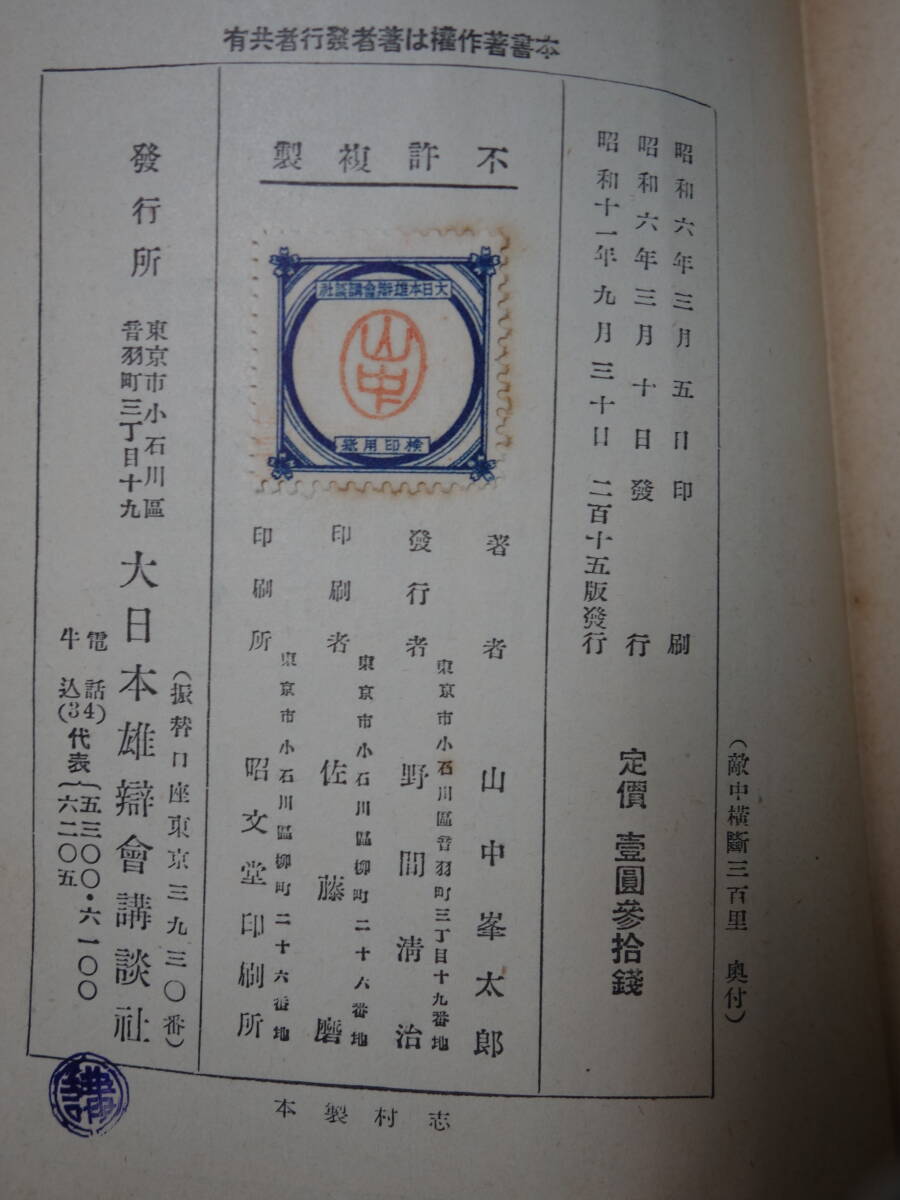 本書著作權は著者發行者共有
(敵中橫斷三百里 奥付)
昭和六年三月五日印刷
昭和六年三月十日發行
昭和十一年九月三十日二百十五版發行
定價 壹圓參拾錢
不許複製
大日本雄辯會講談社
山中
檢印用紙
著者 山中峯太郎
東京市小石川區音羽町三丁目十九番地
發行者 野間淸治
東京市小石川區柳町二十六番地
印刷者 佐藤磨
東京市小石川區柳町二十六番地
印刷所 昭文堂印刷所
發行所
東京市小石川區
音羽町三丁目十九
大日本雄辯會講談社
(振替口座東京三九三〇番)
電話
牛込(34)代表(五三〇〇・六一〇〇
六二〇五
志村製本
講